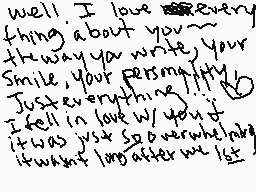 well, I love every
thing about you
the way you write, your
smile, your personality,
Just everything!!!
I fell in love w/ you &
it was just so overwhelming
it wasnt long after we 1st